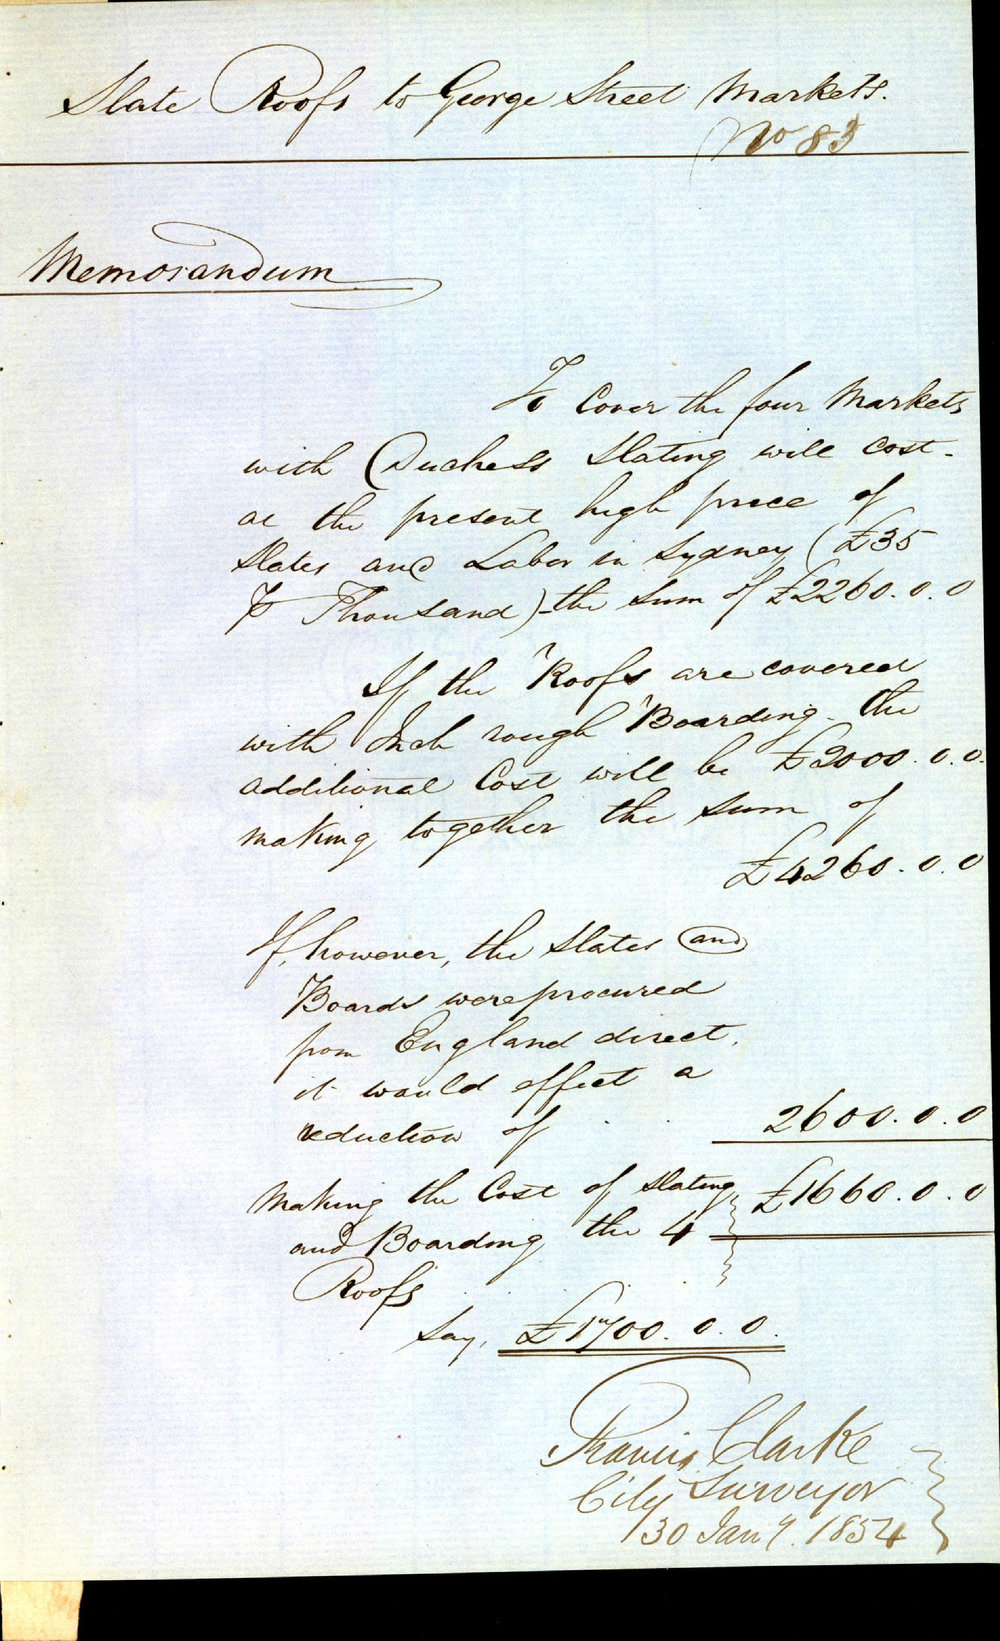 Slate Roofs to George Street Markets.
No 83
Memorandum
To Cover the four Markets
with Duchess Slating will cost -
at the present high price of
Slates and Labor in Sydney (£35
⅌ Thousand) - the sum of £2260.0.0
If the Roofs are covered
with Inch rough Boarding - the
additional Cost will be £2000.0.0.
making together the sum of
£4260.0.0
If, however, the Slates and
Boards were procured
from England direct,
it would effect a
reduction of . . 2600.0.0
Making the Cost of Slating £1660.0.0
and Boarding the 4
Roofs
Say, £1700.0.0.
Francis Clarke
City Surveyor
30 Jany. 1854